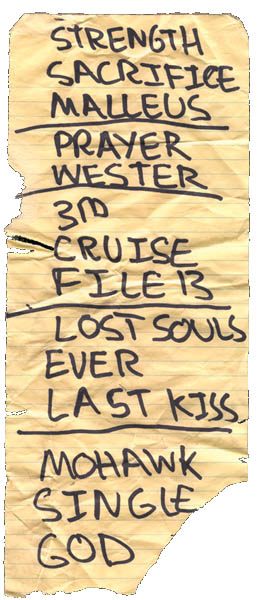 STRENGTH
SACRIFICE
MALLEUS
PRAYER
WESTER
3RD
CRUISE
FILE 13
LOST SOULS
EVER
LAST KISS
MOHAWK
SINGLE
GOD